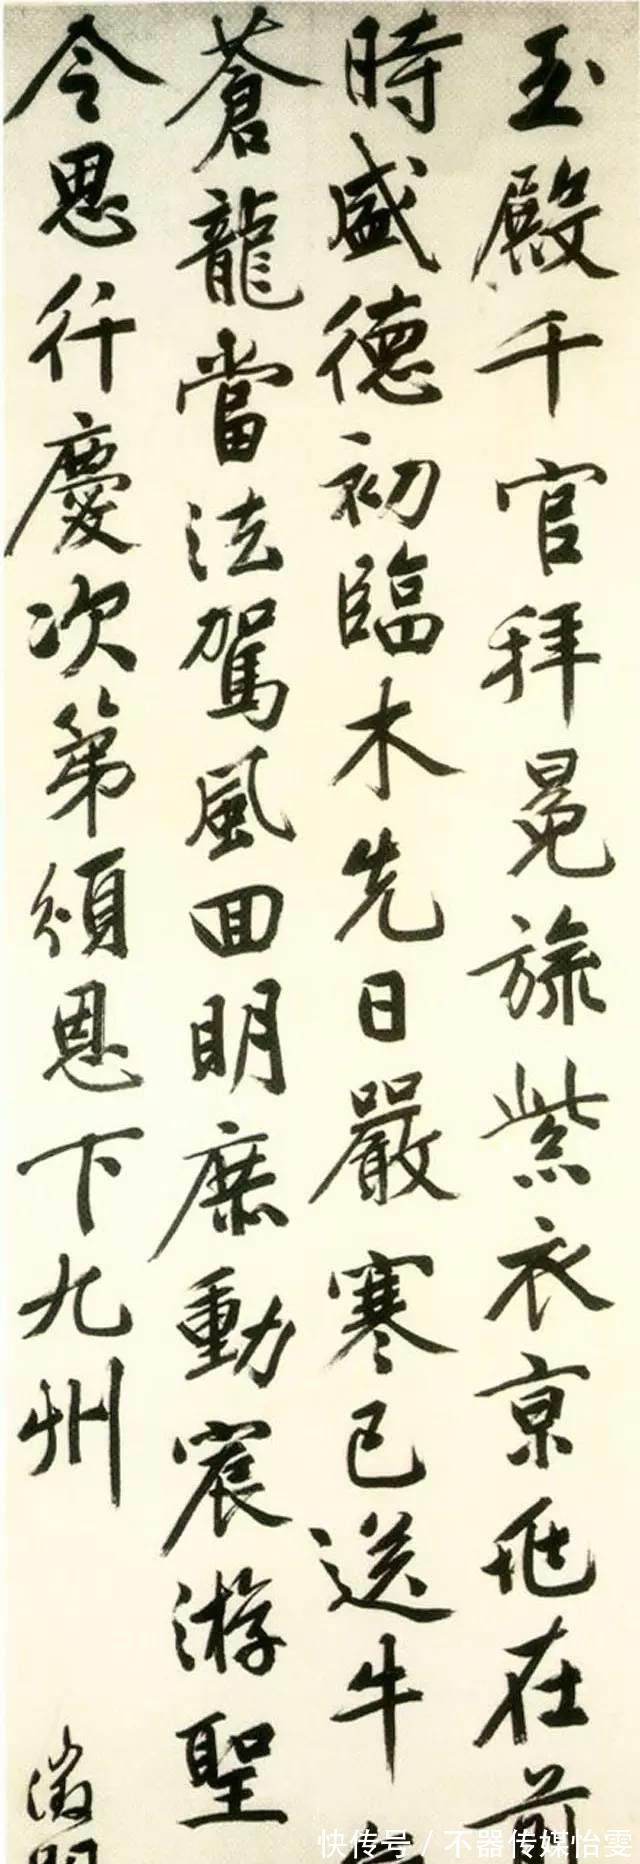 玉殿千官拜冕旒紫衣京兆在前
時盛德初臨木先日嚴寒已送牛
蒼龍當法駕風回明庶動宸游聖
令思行慶次第頒恩下九州
徵明
快传号/不器传媒怡雯